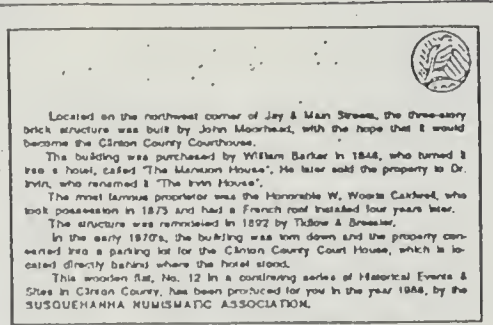 Located on the northwest corner of Jay & Main Streets, the three-story
brick structure was built by John Moorhead, with the hope that it would
become the Clinton County Courthouse.
The building was purchased by William Barker in 1848, who turned it
into a hotel, called "The Mansion House". He later sold the property to Dr.
Irvin, who renamed it "The Irvin House".
The most famous proprietor was the Honorable W. Woods Caldwell, who
took possession in 1875 and had a French roof installed four years later.
The structure was remodeled in 1892 by Tidlow & Bressler.
In the early 1970's, the building was torn down and the property con-
verted into a parking lot for the Clinton County Court House, which is lo-
cated directly behind where the hotel stood.
This wooden flat, No. 12 in a continuing series of Historical Events &
Sites in Clinton County, has been produced for you in the year 1988, by the
SUSQUEHANNA NUMISMATIC ASSOCIATION.